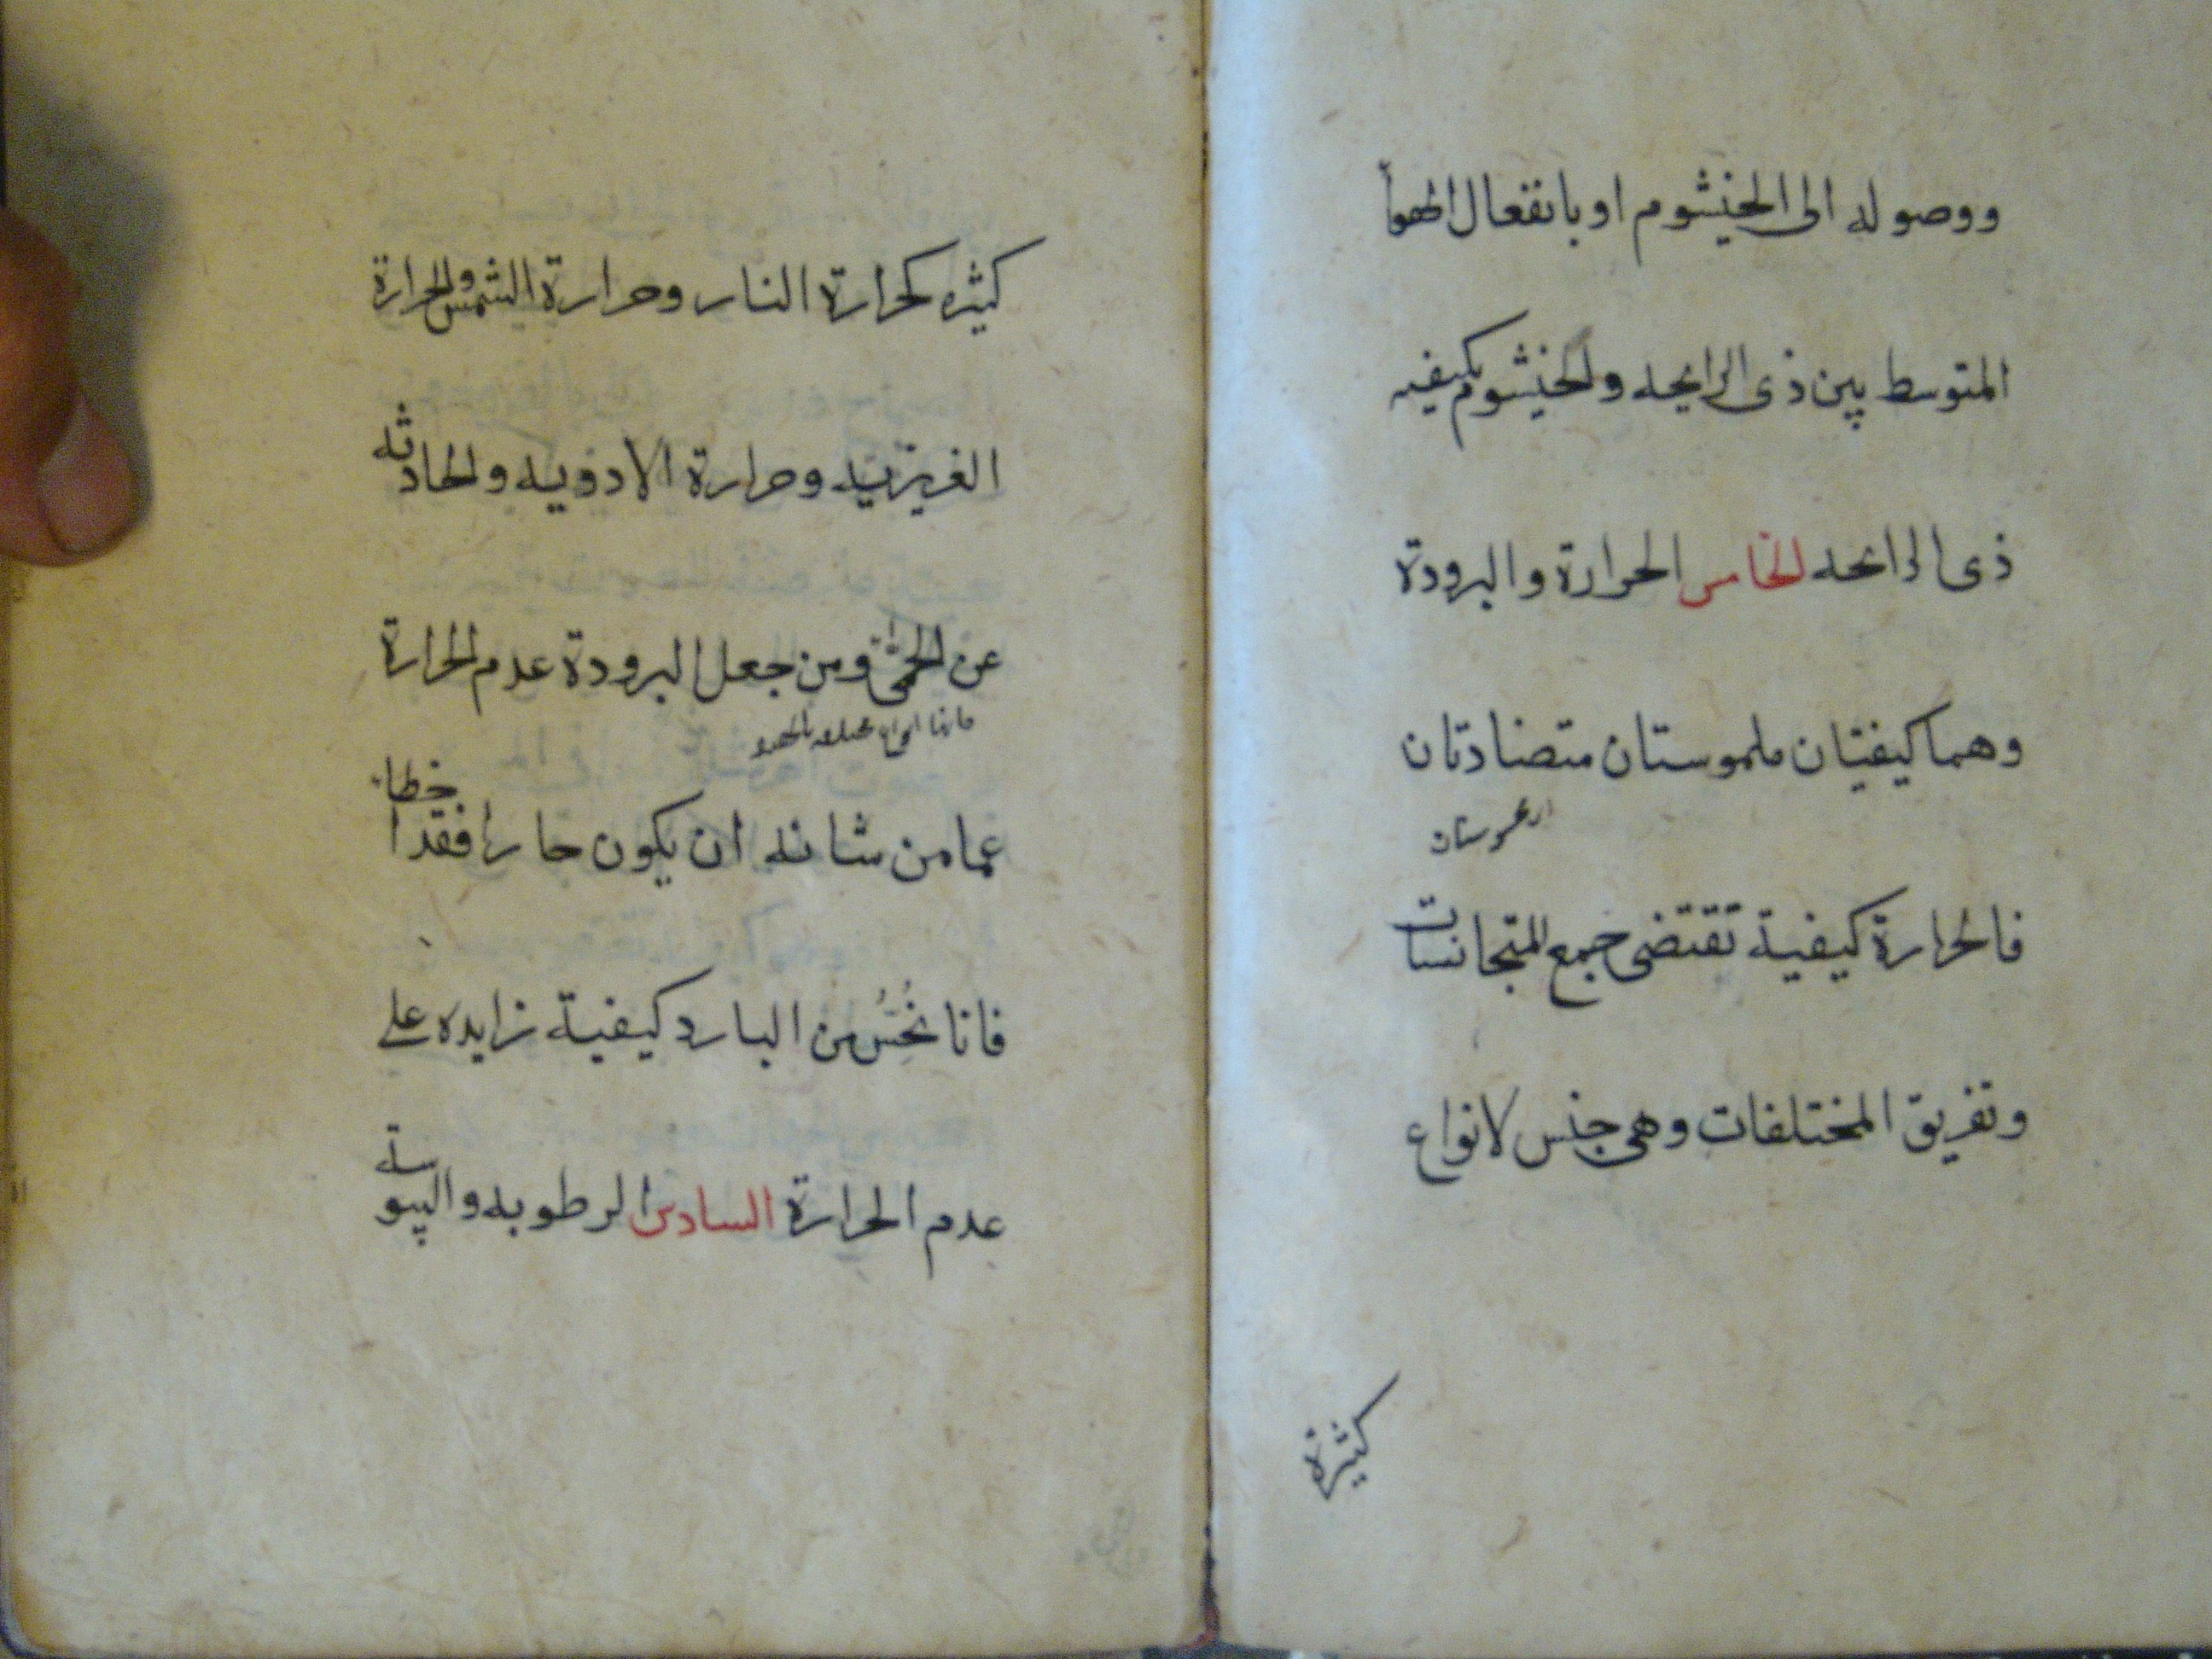 ووصوله الى الخيشوم او بانفعال الهوأ
المتوسط بين ذى الرايحه والخيشوم بكيفيه
ذى الرائحه الخامس الحرارة والبرودة
وهما كيفيتان ملموستان متضادتان
فالحرارة كيفية تقتضى جمع المتجانسات
وتفريق المختلفات وهى جنس لانواع
كثيرة
كثيره كحرارة النار وحرارة الشمس والحرارة
الغريزيه وحرارة الادويه والحادثه
عن الحمى ومن جعل البرودة عدم الحرارة
عما من شانه ان يكون حارا فقد اخطا
فانا نُحُسُ من البارد كيفية زايده على
عدم الحرارة السادس الرطوبه واليبوسة